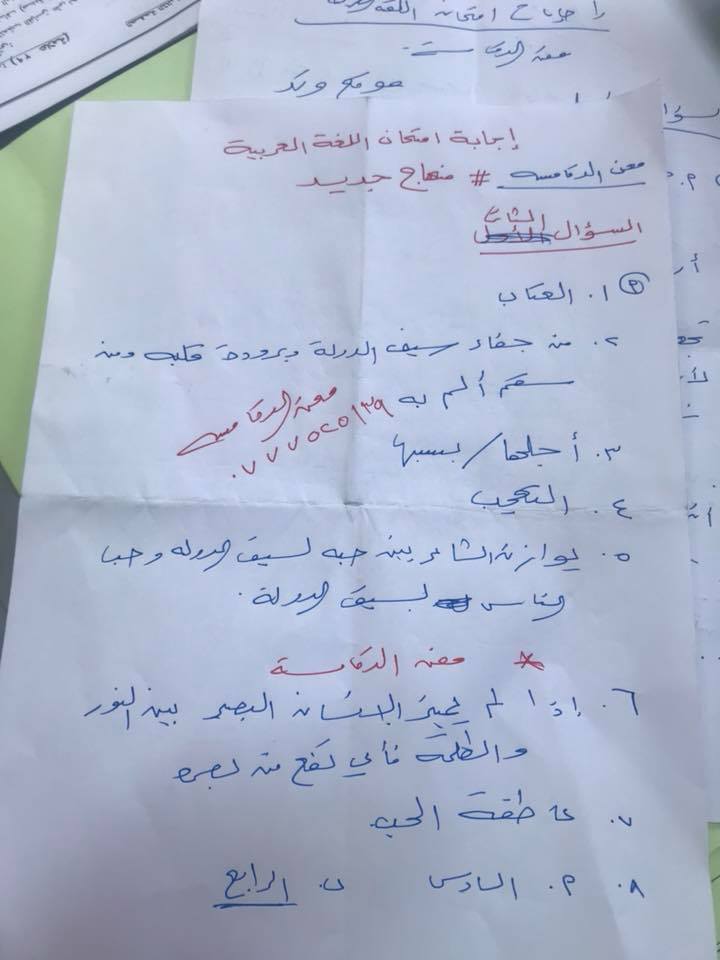 اجابات امتحان اللغة
معن الدقامسة
إجابة امتحان اللغة العربية
معن الدقامسه # منهاج جديد
السؤال الأول الثاني
P ١. العتاب
٢. من جفاء سيف الدولة وبرودة قلبه ومن
سقم ألم به
معن الدقامسه
٠٧٧٧٥٢٥١٣٩
٣. أجلها / بسببها
٤. التعجب
٥. يوازن الشاعر بين حبه لسيف الدوله وحب
الناس لسيف الدولة.
* معن الدقامسة
٦. إذا لم يميز الإنسان البصير بين النور
والظلمة فأي نفع من بصره
٧. عاطفة الحب.
٨. P. السادس ب. الرابع